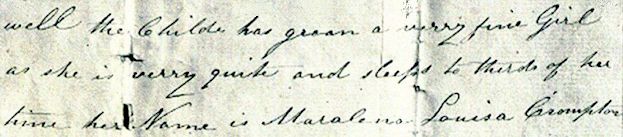 well the Childe has groan a verry fine Girl
as she is verry quite and sleeps to thirds of her
time her Name is Maralena Louisa Crompton